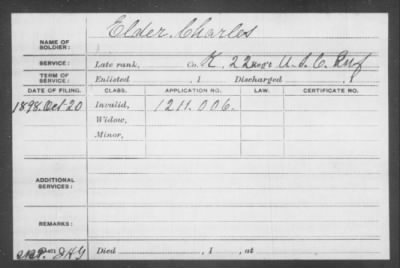 NAME OF SOLDIER: Elder, Charles
SERVICE: Late rank, Co. K, 22 Reg't U.S.C. Inf
TERM OF SERVICE: Enlisted , 1 Discharged , 1
DATE OF FILING. CLASS. APPLICATION NO. LAW. CERTIFICATE NO.
1898. Oct 20 Invalid, 1211.006.
Widow,
Minor,
ADDITIONAL SERVICES:
REMARKS:
Died , 1 , at